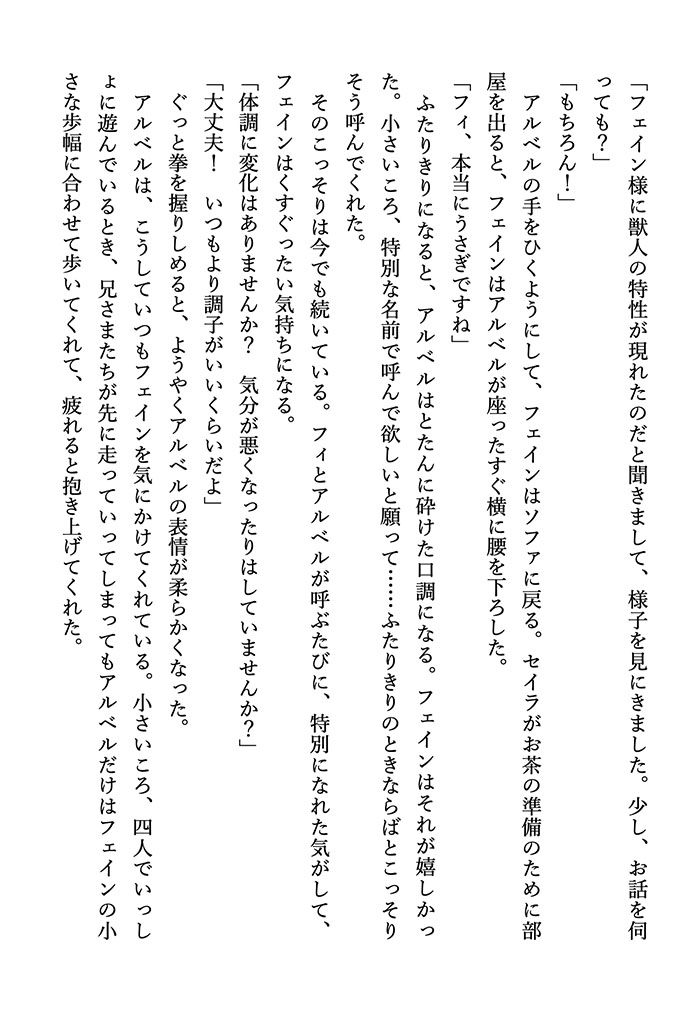 「フェイン様に獣人の特性が現れたのだと聞きまして、様子を見にきました。少し、お話を伺
っても？」
「もちろん！」
　アルベルの手をひくようにして、フェインはソファに戻る。セイラがお茶の準備のために部
屋を出ると、フェインはアルベルが座ったすぐ横に腰を下ろした。
「フィ、本当にうさぎですね」
　ふたりきりになると、アルベルはとたんに砕けた口調になる。フェインはそれが嬉しかっ
た。小さいころ、特別な名前で呼んで欲しいと願って……ふたりきりのときならばとこっそり
そう呼んでくれた。
　そのこっそりは今でも続いている。フィとアルベルが呼ぶたびに、特別になれた気がして、
フェインはくすぐったい気持ちになる。
「体調に変化はありませんか？　気分が悪くなったりはしていませんか？」
「大丈夫！　いつもより調子がいいくらいだよ」
　ぐっと拳を握りしめると、ようやくアルベルの表情が柔らかくなった。
　アルベルは、こうしていつもフェインを気にかけてくれている。小さいころ、四人でいっし
ょに遊んでいるとき、兄さまたちが先に走っていってしまってもアルベルだけはフェインの小
さな歩幅に合わせて歩いてくれて、疲れると抱き上げてくれた。